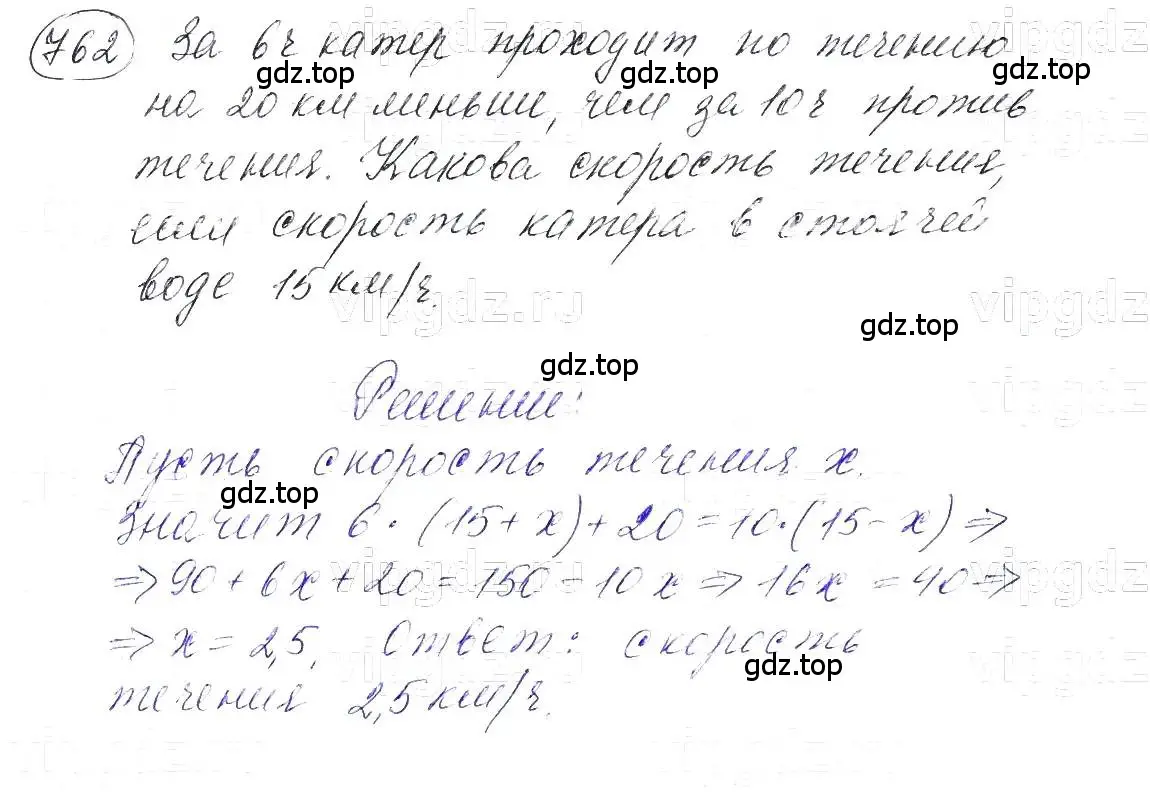 762 За 6ч катер проходит по течению
gdz.top gdz.top
на 20 км меньше, чем за 10ч против
течения. Какова скорость течения,
если скорость катера в стоячей
воде 15 км/ч.
vipgdz.ru vipgdz
gdz.top
gdz.top
Решение:
Пусть скорость течения x.
gdz.top
Значит 6·(15+x)+20=10·(15-x)⇒
⇒90+6x+20=150-10x⇒16x=40⇒
⇒x=2,5. Ответ: скорость
gdz.top
течения 2,5 км/ч.